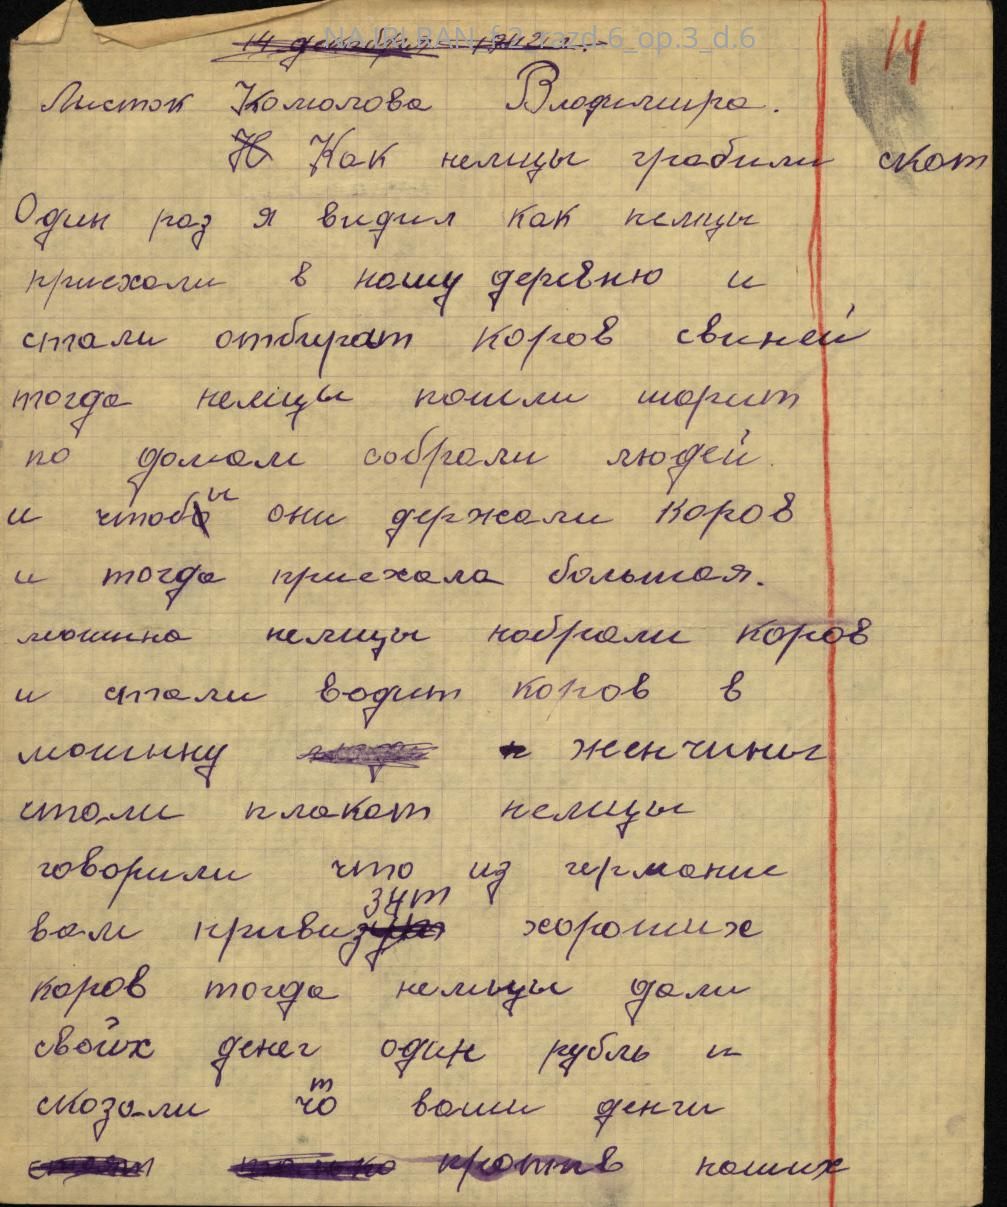 NA IRI RAN_f.2_razd.6_op.3_d.6
14
14 декабря 1942 г.
Листок Комолова Владимира.
Н Как немцы грабили скот
Один раз я видил как немцы
приехали в нашу деревню и
стали отбират коров свиней
тогда немцы пошли шарит
по домам собрали людей
и чтобы они держали коров
и тогда приехала большая.
машина немицы набрали коров
и стали водит коров в
машыну женчины
стали плакат немицы
говорили что из германие
вам кривизут хороших
коров тогда немицы дали
своих денег один рубль и
сказали что ваши денги
против наших